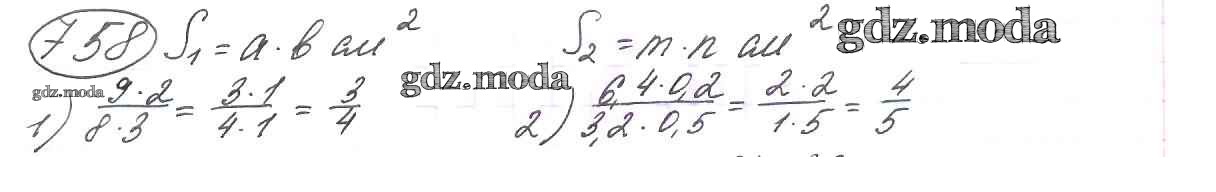 758 S₁ = a · b см² S₂ = m · n см² gdz.moda
gdz.moda gdz.moda
1) 9·2/8·3 = 3·1/4·1 = 3/4 2) 6,4·0,2/3,2·0,5 = 2·2/1·5 = 4/5